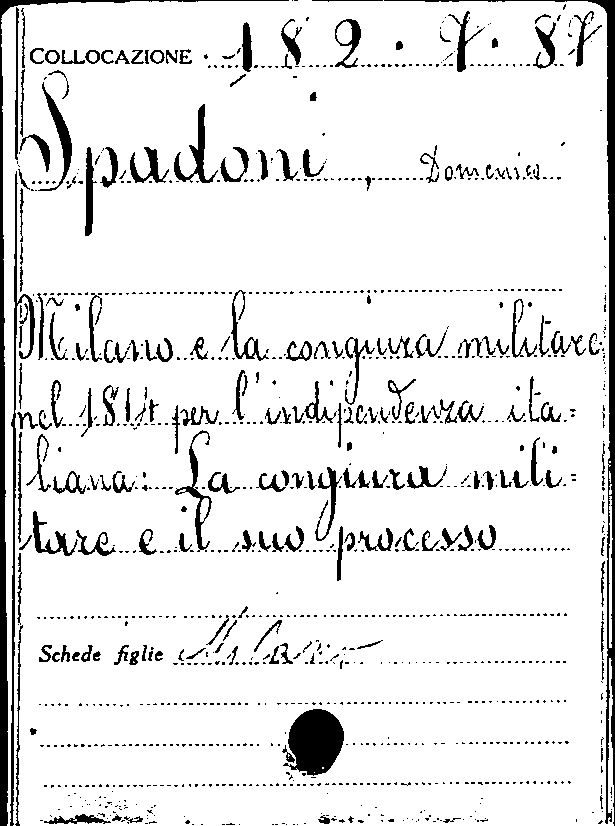 COLLOCAZIONE 182.7.87
Spadoni, Domenico
Milano e la congiura militare
nel 1814 per l'indipendenza ita=
liana: La congiura mili=
tare e il suo processo
Schede figlie Milano